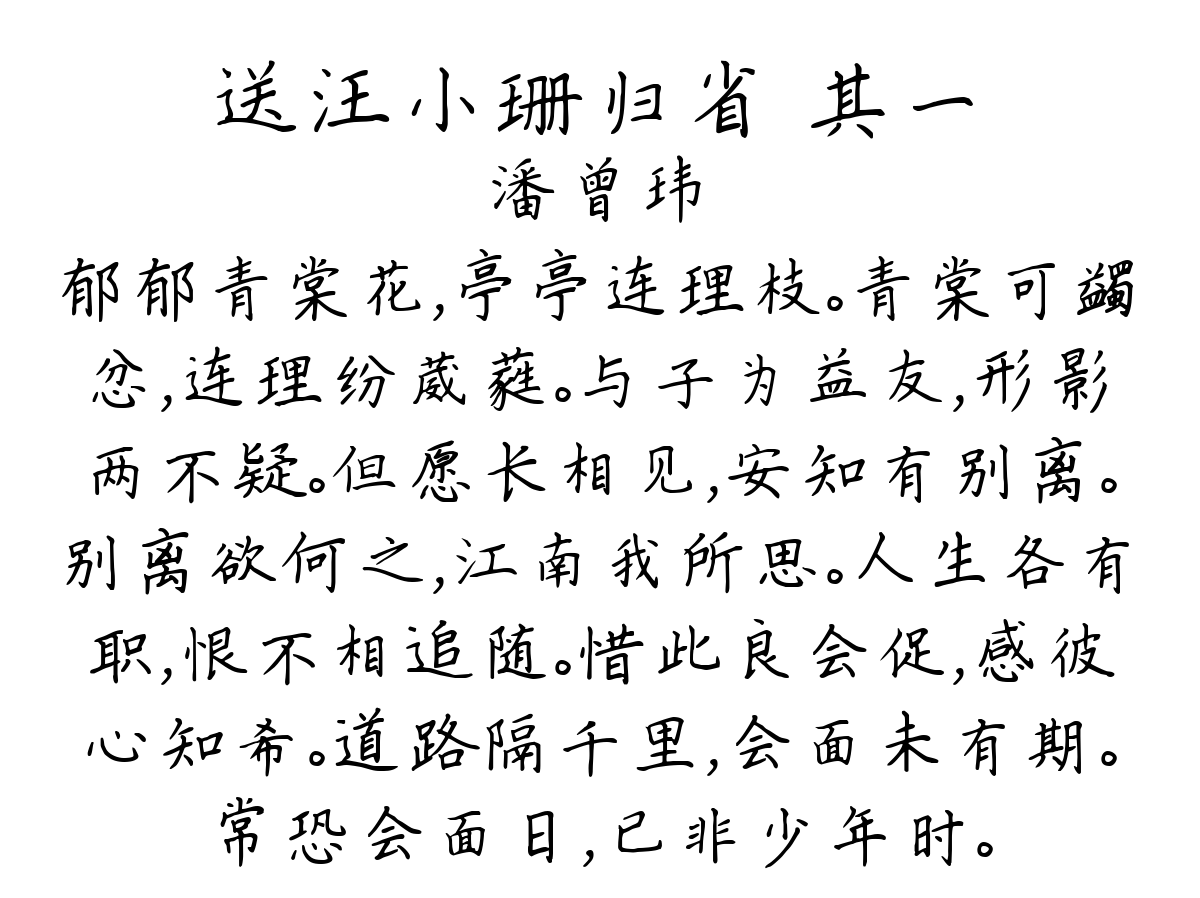 送汪小珊归省 其一
潘曾玮
郁郁青棠花,亭亭连理枝。青棠可蠲
忿,连理纷葳蕤。与子为益友,形影
两不疑。但愿长相见,安知有别离。
别离欲何之,江南我所思。人生各有
职,恨不相追随。惜此良会促,感彼
心知希。道路隔千里,会面未有期。
常恐会面日,已非少年时。